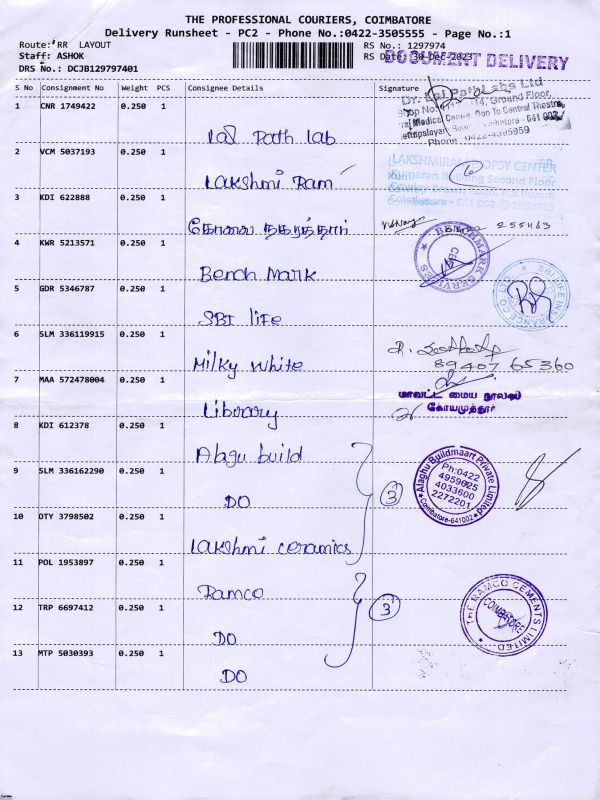 THE PROFESSIONAL COURIERS, COIMBATORE
Delivery Runsheet - PC2 - Phone No.:0422-3505555 - Page No.:1
Route: RR LAYOUT
RS No.: 1297974
Staff: ASHOK
RS Date: 30-Dec-2023
DOCUMENT DELIVERY
DRS No.: DCJB129797401
S No Consignment No Weight PCS Consignee Details Signature
1 CNR 1749422 0.250 1 Lal Path Lab
Dr. Lal PathLabs Ltd
14, Ground Floor,
Medical Centre, Opp To Central Theatre,
Coimbatore - 641 002
Phone 0422-4395959
2 VCM 5037193 0.250 1 Lakshmi Ram
LAKSHMIRAM BIOPSY CENTER
Kumaran Building Second Floor
Coimbatore - 641 002
3 KDI 622888 0.250 1 கோவை நகரத்தார்
4 KWR 5213571 0.250 1 Bench Mark
BENCHMARK SERVICES
CBE
5 GDR 5346787 0.250 1 SBI life
SBI LIFE INSURANCE CO LTD
6 SLM 336119915 0.250 1 Milky White
89407 65360
7 MAA 572478004 0.250 1 Library
மாவட்ட மைய நூலகம்
கோயமுத்தூர்
8 KDI 612378 0.250 1 Alagu build
9 SLM 336162290 0.250 1 DO
3
Alaghu Buildmaart Private Limited
Ph:0422
4959025
4033600
2272201
Coimbatore-641002
10 OTY 3798502 0.250 1 Lakshmi ceramics
11 POL 1953897 0.250 1 Ramco
12 TRP 6697412 0.250 1 DO
3
THE RAMCO CEMENTS LIMITED
COIMBATORE
13 MTP 5030393 0.250 1 DO